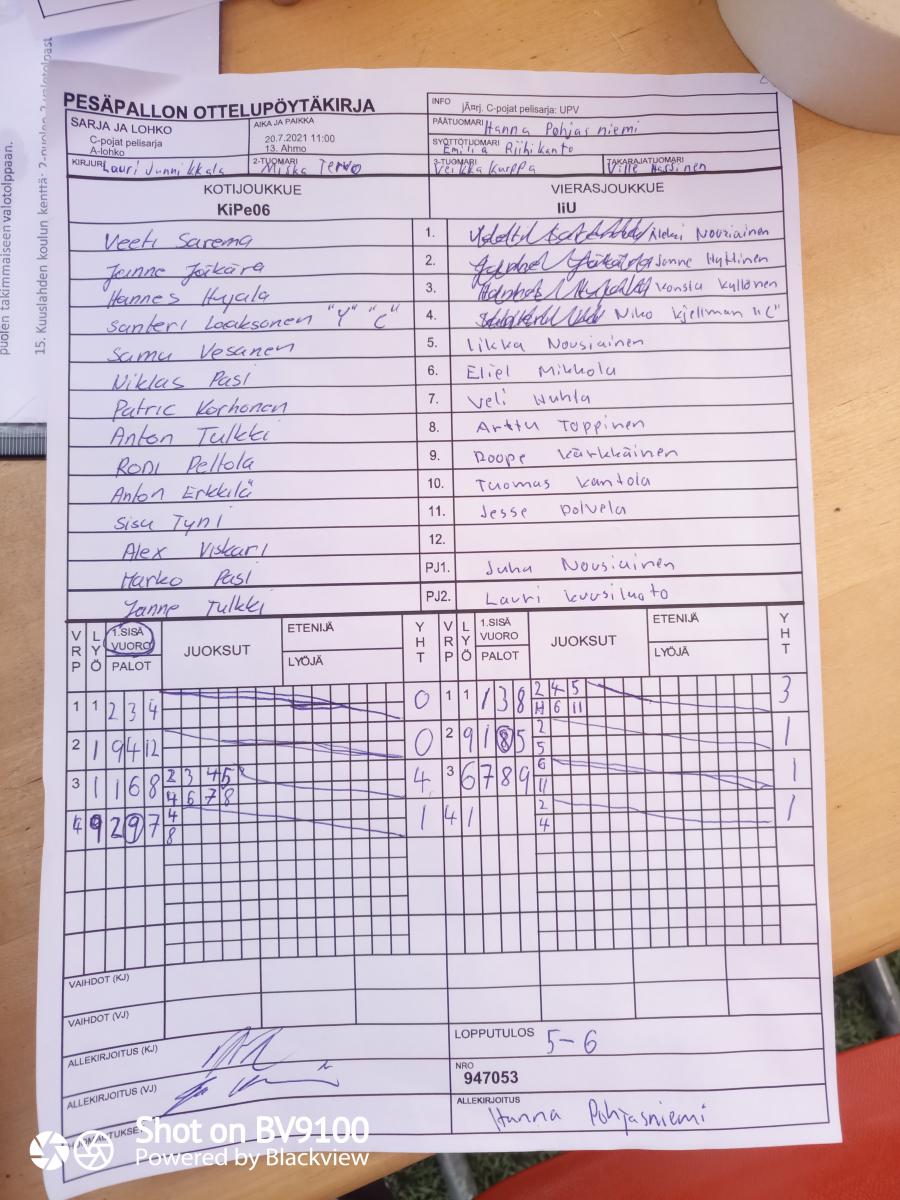 puolen takimmaiseen valotolppaan.
15. Kuuslahden koulun kenttä:
PESÄPALLON OTTELUPÖYTÄKIRJA
INFO jÃ¤rj. C-pojat pelisarja: UPV
SARJA JA LOHKO
C-pojat pelisarja
A-lohko
AIKA JA PAIKKA
20.7.2021 11:00
13. Ahmo
PÄÄTUOMARI Hanna Pohjasniemi
SYÖTTÖTUOMARI Emilia Riihikanto
KIRJURI Lauri Junnikkala 2-TUOMARI Miska Tervo 3-TUOMARI Veikka Kurppa TAKARAJATUOMARI Ville
KOTIJOUKKUE VIERASJOUKKUE
KiPe06 IiU
Veeti Sarema 1. Aleksi Nousiainen
Janne Jäikärä 2. Janne Hyttinen
Hannes Hyala 3. Konsta Kyllönen
Santeri Laaksonen "Y" "C" 4. Niko Kjellman "C"
Samu Vesanen 5. Iikka Nousiainen
Niklas Pasi 6. Eliel Mikkola
Patric Korhonen 7. Veli Huhla
Anton Tulkki 8. Arttu Toppinen
Roni Peltola 9. Roope Kärkkäinen
Anton Erkkilä 10. Tuomas Kantola
Sisu Tyni 11. Jesse Polvela
Alex Viskari 12.
Marko Pasi PJ1. Juha Nousiainen
Janne Tulkki PJ2. Lauri Kuusiluoto
VRP LYÖ 1.SISÄ VUORO PALOT JUOKSUT ETENIJÄ LYÖJÄ YHT VRP LYÖ 1.SISÄ VUORO PALOT JUOKSUT ETENIJÄ LYÖJÄ YHT
1 1 2 3 4 0 1 1 1 3 8 2 4 5 3
4 6 11
2 1 9 4 12 0 2 9 1 8 5 2 1
5
3 1 1 6 8 2 3 4 5 4 3 6 7 8 9 6 1
4 6 7 8 11
4 9 2 9 7 4 1 4 1 2 1
8 4
VAIHDOT (KJ)
VAIHDOT (VJ)
ALLEKIRJOITUS (KJ) LOPPUTULOS 5-6
ALLEKIRJOITUS (VJ) NRO
947053
HUOMAUTUKSET ALLEKIRJOITUS
Hanna Pohjasniemi
Shot on BV9100
Powered by Blackview